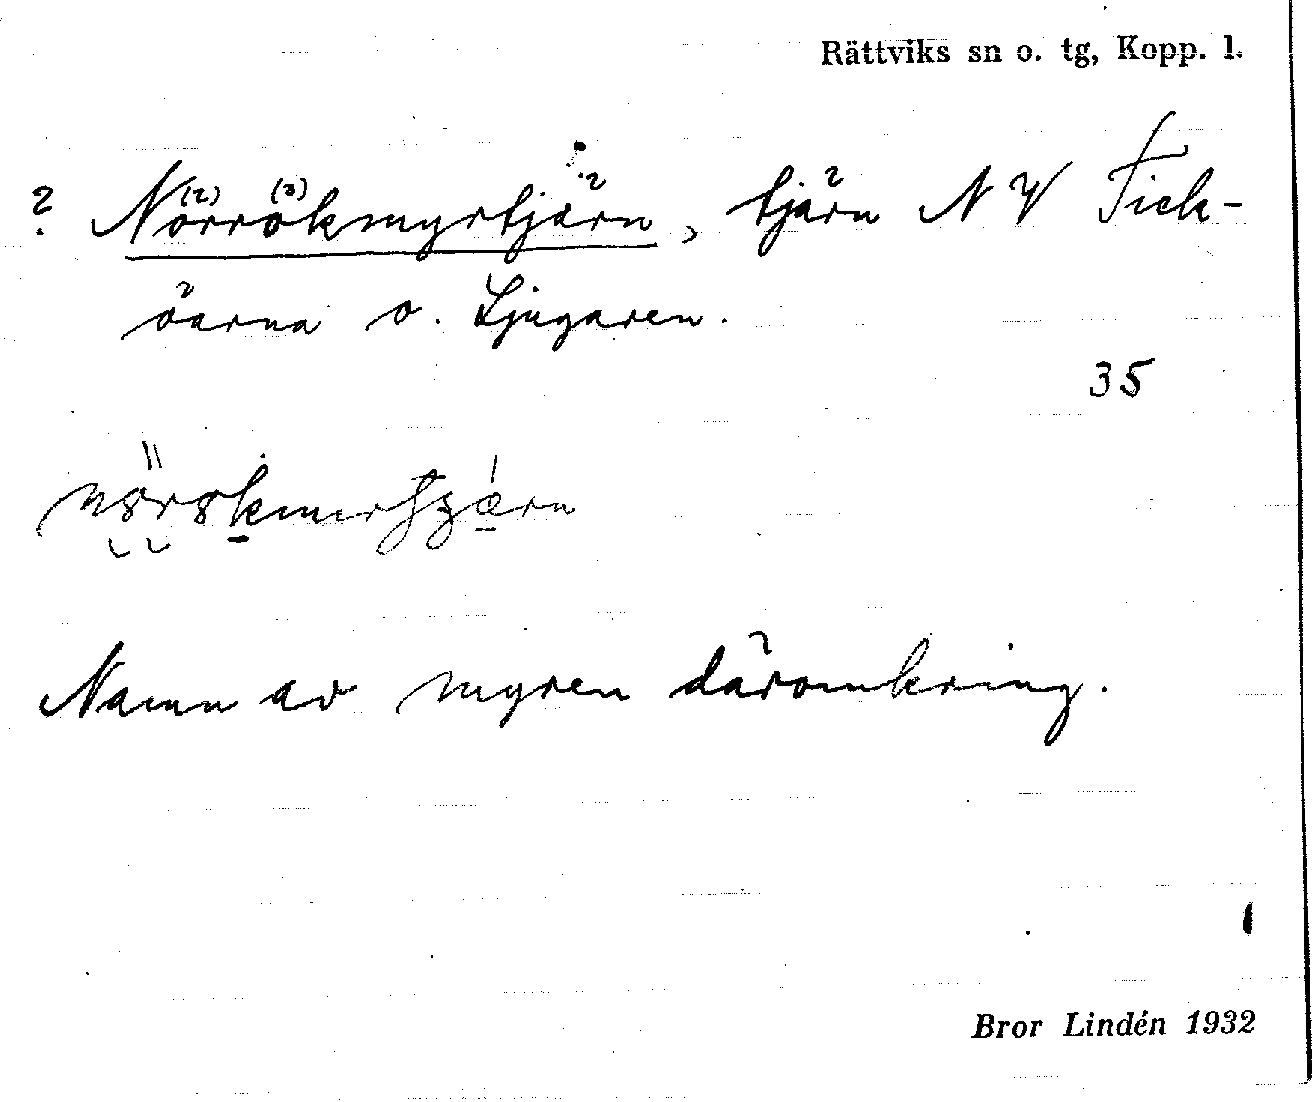 Rättviks sn o. tg, Kopp. l.
? Nörrökmyrtjärn, tjärn NV Fick-
öarna o. Ljugaren.
35
Namn av myren däromkring.
Bror Lindén 1932